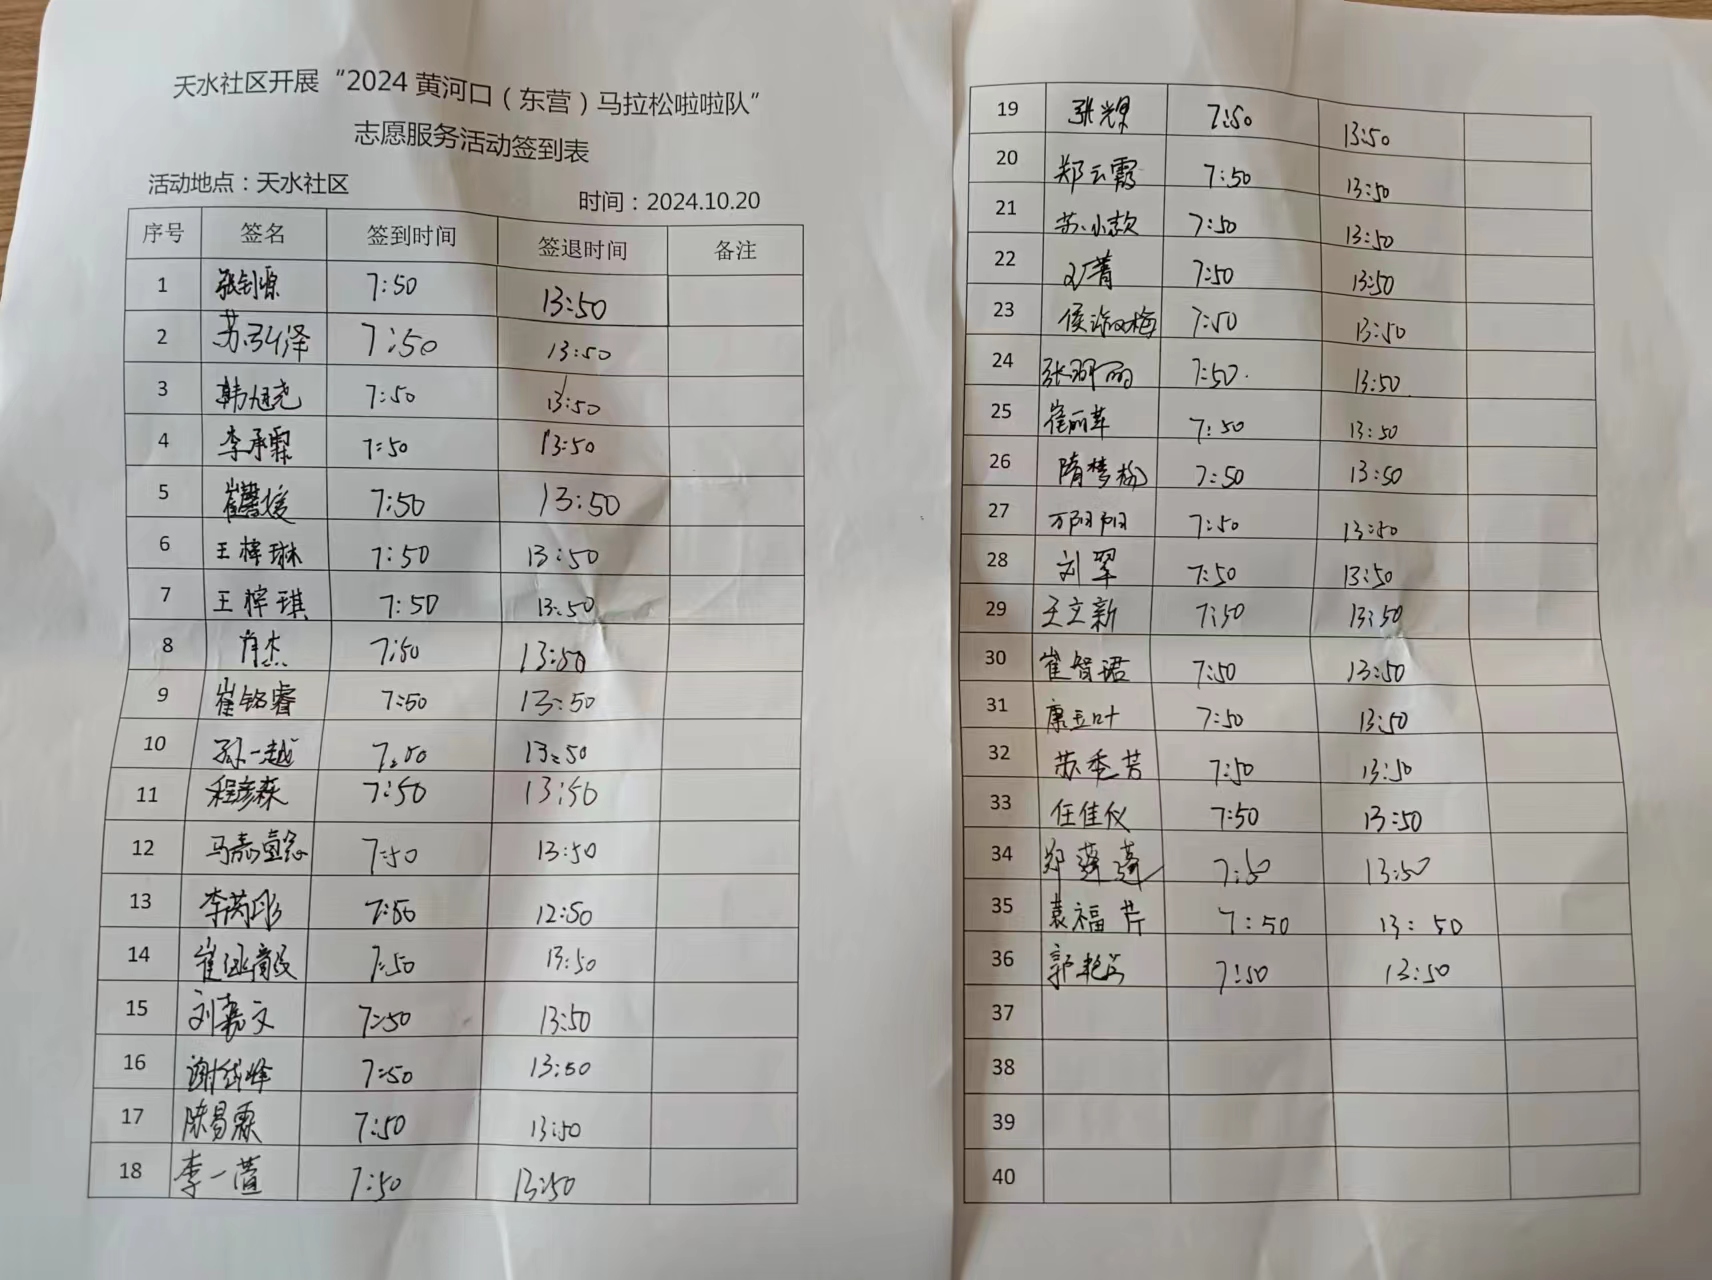 天水社区开展“2024 黄河口（东营）马拉松啦啦队”
志愿服务活动签到表
活动地点：天水社区 时间：2024.10.20
序号 签名 签到时间 签退时间 备注
1 张钊源 7:50 13:50
2 苏弘泽 7:50 13:50
3 韩旭尧 7:50 13:50
4 李承霖 7:50 13:50
5 崔馨媛 7:50 13:50
6 王梓琳 7:50 13:50
7 王梓琪 7:50 13:50
8 7:50 13:50
9 崔铭睿 7:50 13:50
10 孙一越 7:50 13:50
11 程彦森 7:50 13:50
12 7:50 13:50
13 7:50 12:50
14 7:50 13:50
15 刘嘉文 7:50 13:50
16 7:50 13:50
17 陈易霖 7:50 13:50
18 李一萱 7:50 13:50
19 张翠 7:50 13:50
20 郑云霞 7:50 13:50
21 苏小款 7:50 13:50
22 7:50 13:50
23 7:50 13:50
24 7:50. 13:50.
25 崔丽苹 7:50 13:50
26 隋梦杨 7:50 13:50
27 万阳阳 7:50 13:50
28 刘翠 7:50 13:50
29 王立新 7:50 13:50
30 崔智珺 7:50 13:50
31 康玉叶 7:50 13:50
32 苏秀芳 7:50 13:50
33 任佳仪 7:50 13:50
34 郑莲莲 7:50 13:50
35 袁福芹 7:50 13:50
36 7:50 13:50
37
38
39
40